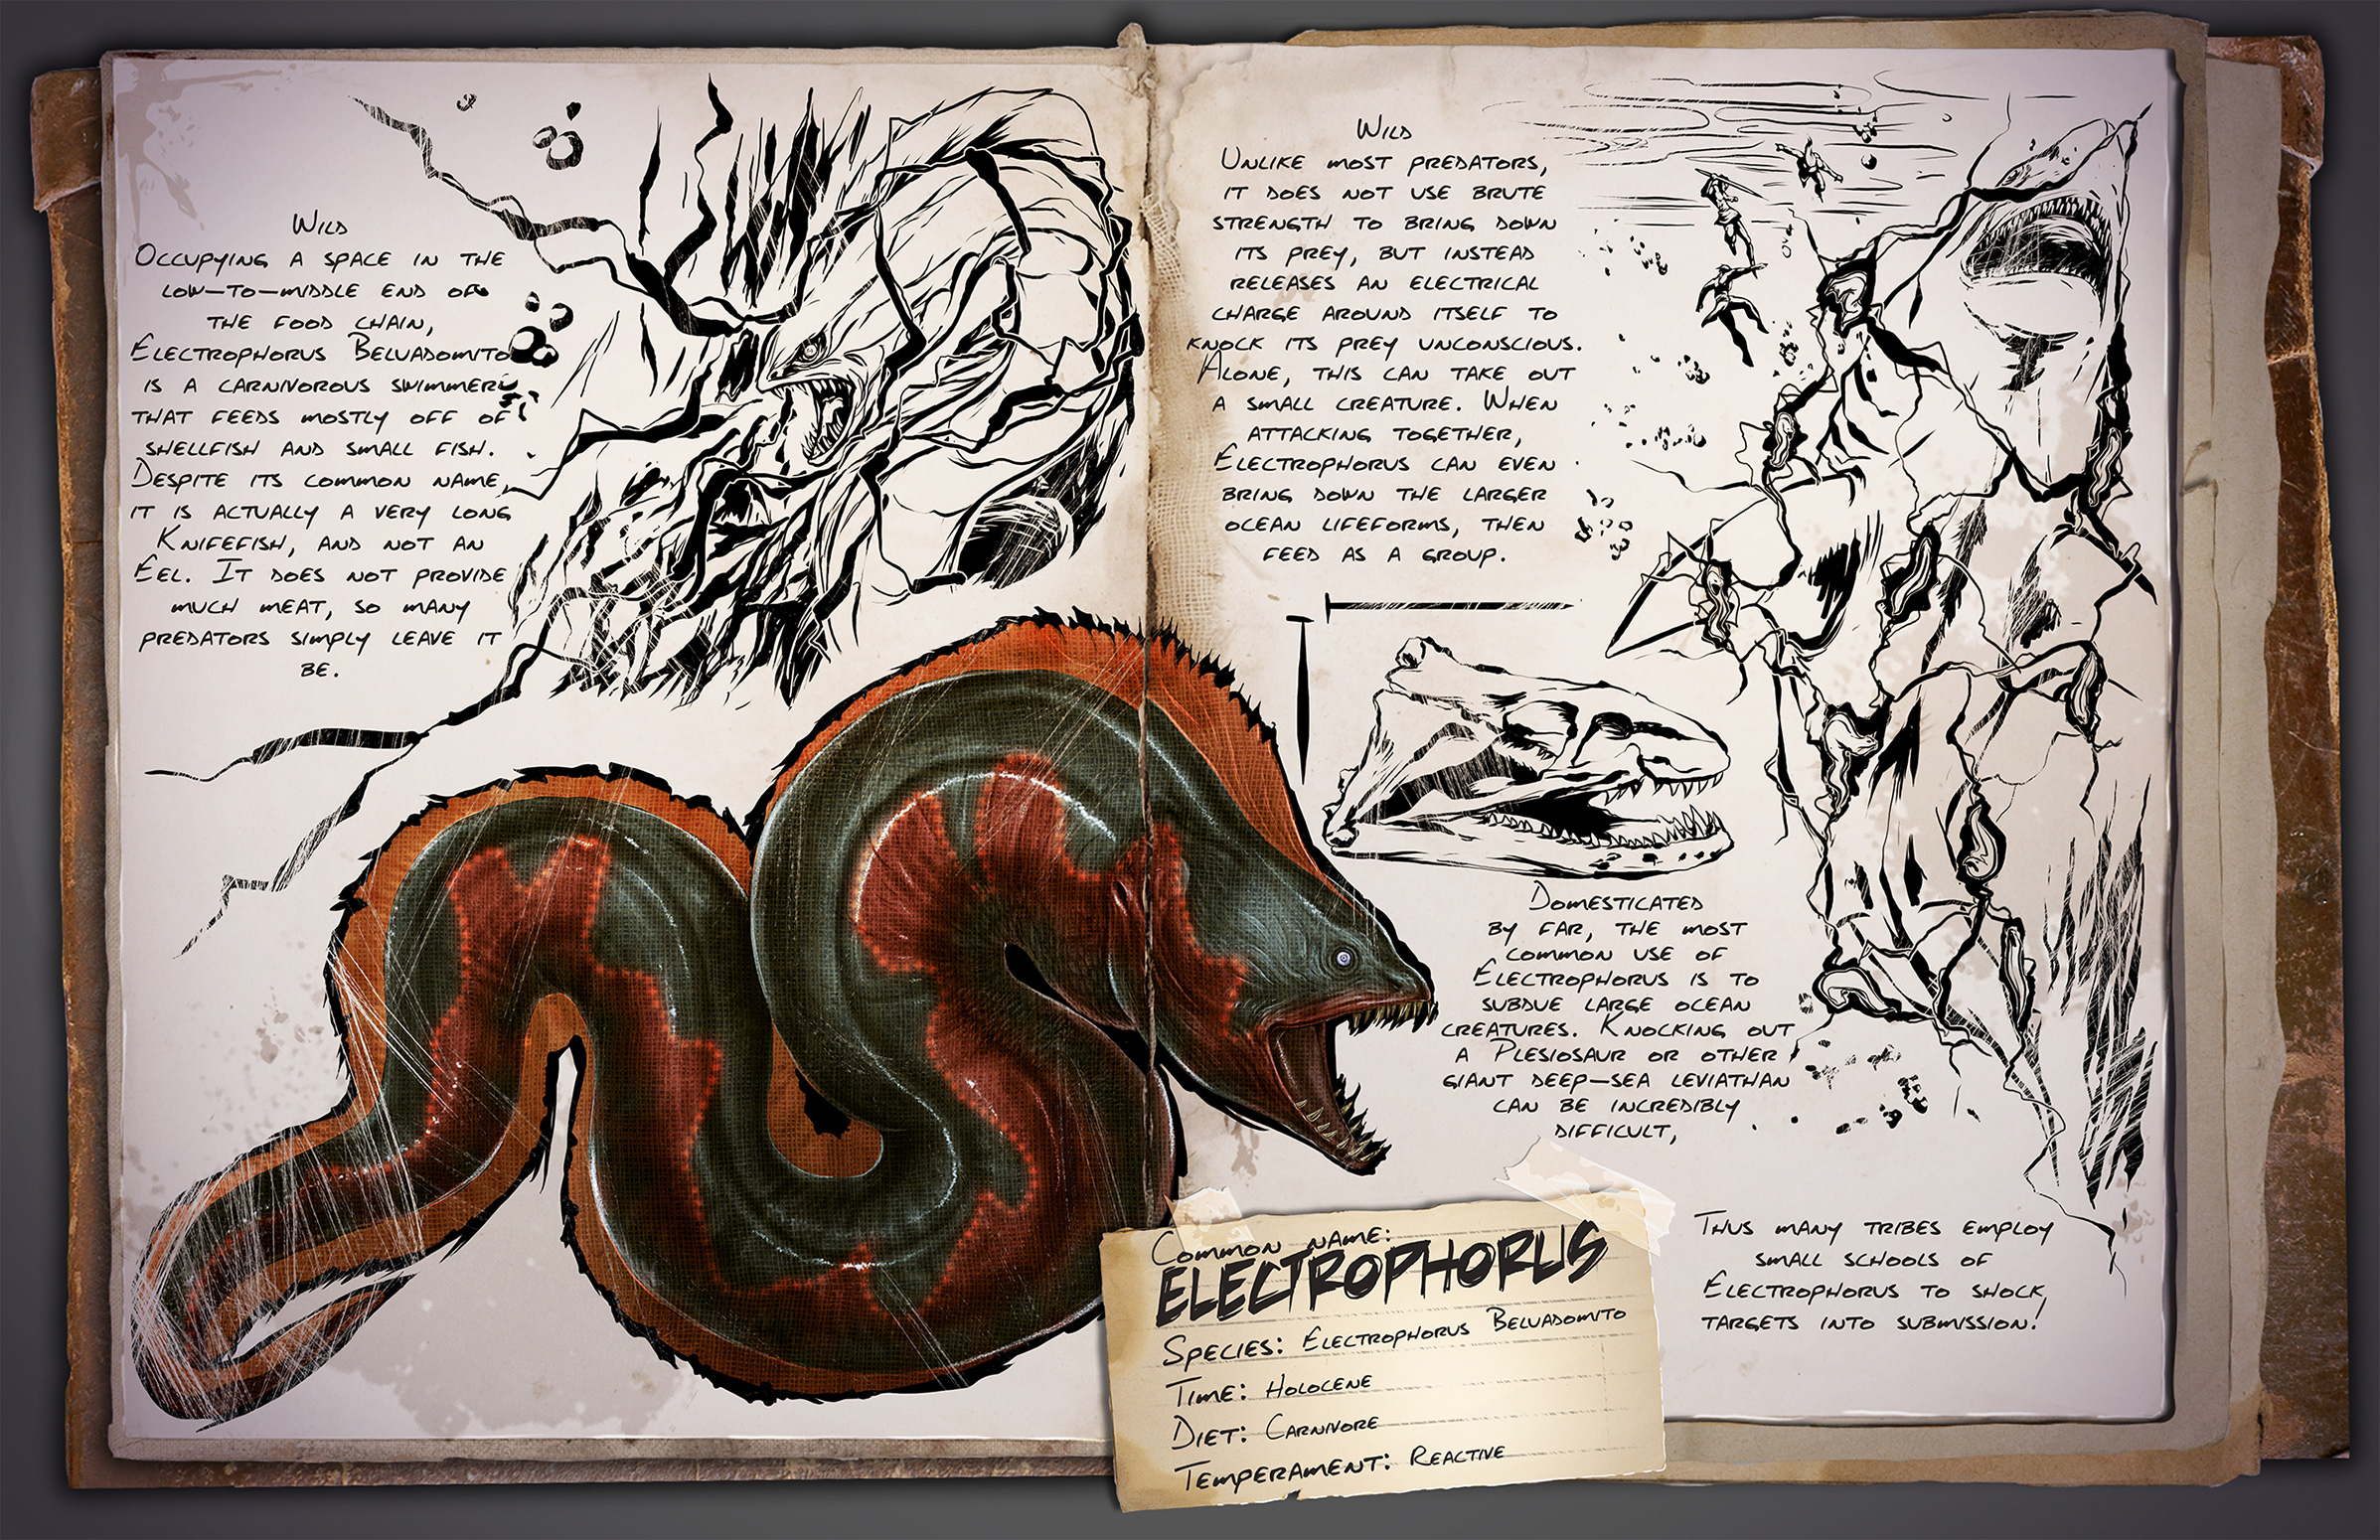 Wild
Occupying a space in the
low-to-middle end of
the food chain,
Electrophorus Beluadomito
is a carnivorous swimmer
that feeds mostly off of
shellfish and small fish.
Despite its common name,
it is actually a very long
Knifefish, and not an
Eel. It does not provide
much meat, so many
predators simply leave it
be.
Wild
Unlike most predators,
it does not use brute
strength to bring down
its prey, but instead
releases an electrical
charge around itself to
knock its prey unconscious.
Alone, this can take out
a small creature. When
attacking together,
Electrophorus can even
bring down the larger
ocean lifeforms, then
feed as a group.
Domesticated
by far, the most
common use of
Electrophorus is to
subdue large ocean
creatures. Knocking out
a Plesiosaur or other
giant deep-sea leviathan
can be incredibly
difficult,
Thus many tribes employ
small schools of
Electrophorus to shock
targets into submission!
Common name:
Electrophorus
Species: Electrophorus Beluadomito
Time: Holocene
Diet: Carnivore
Temperament: Reactive